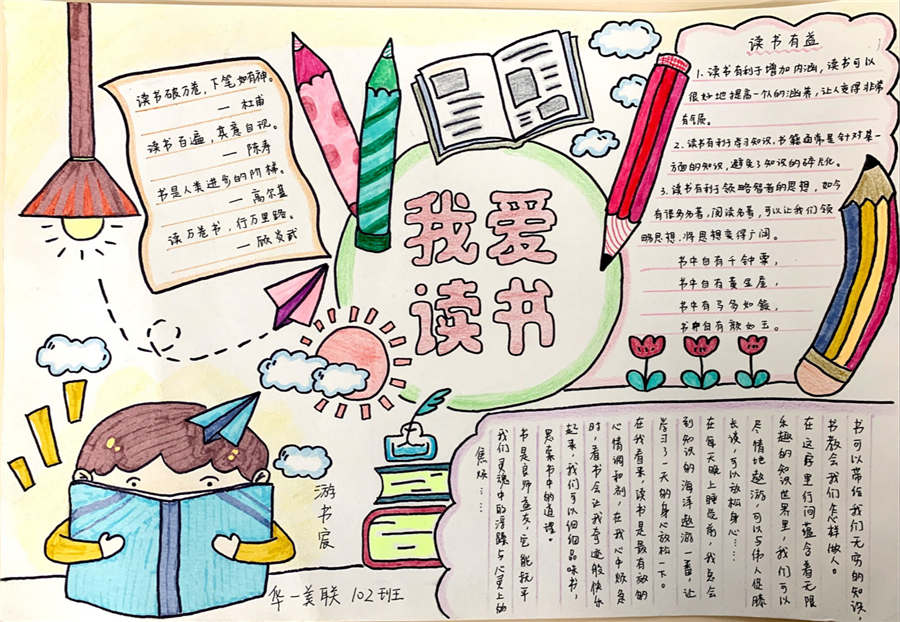 读书破万卷，下笔如有神。
— 杜甫
读书百遍，其意自现。
— 陈寿
书是人类进步的阶梯。
— 高尔基
读万卷书，行万里路。
— 顾炎武
我爱
读书
读书有益
1. 读书有利于增加内涵，读书可以
很好地提高一个人的涵养，让人变得非常
有气质。
2. 读书有利于学习知识，书籍通常是针对某一
方面的知识，避免了知识的碎片化。
3. 读书有利于领略智者的思想，如今
有很多名著，阅读名著，可以让我们领
略思想，将思想变得广阔。
书中自有千钟粟，
书中自有黄金屋，
书中有马多如簇，
书中自有颜如玉。
书可以带给我们无穷的知识，
书教会我们怎样做人。
在这字里行间蕴含着无限
乐趣的知识世界里，我们可以
尽情地遨游，可以与伟人促膝
长谈，可以放松身心……
在每天晚上睡觉前，我总会
到知识的海洋遨游一番，让
学习了一天的身心放松一下。
在我看来，读书是最有效的
心情调和剂，在我心中烦急
时，看书会让我奇迹般快乐
起来，我们可以细细品味书，
思索书中的道理。
书是良师益友，它能抚平
我们灵魂中的浮躁与心灵上的
焦烦……
游书宸
华一美联 102班